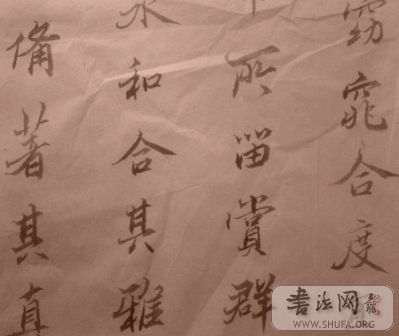 窈窕合度
所留賞群
和合其雅
備著其真
書法网
WWW.SHUFA.ORG